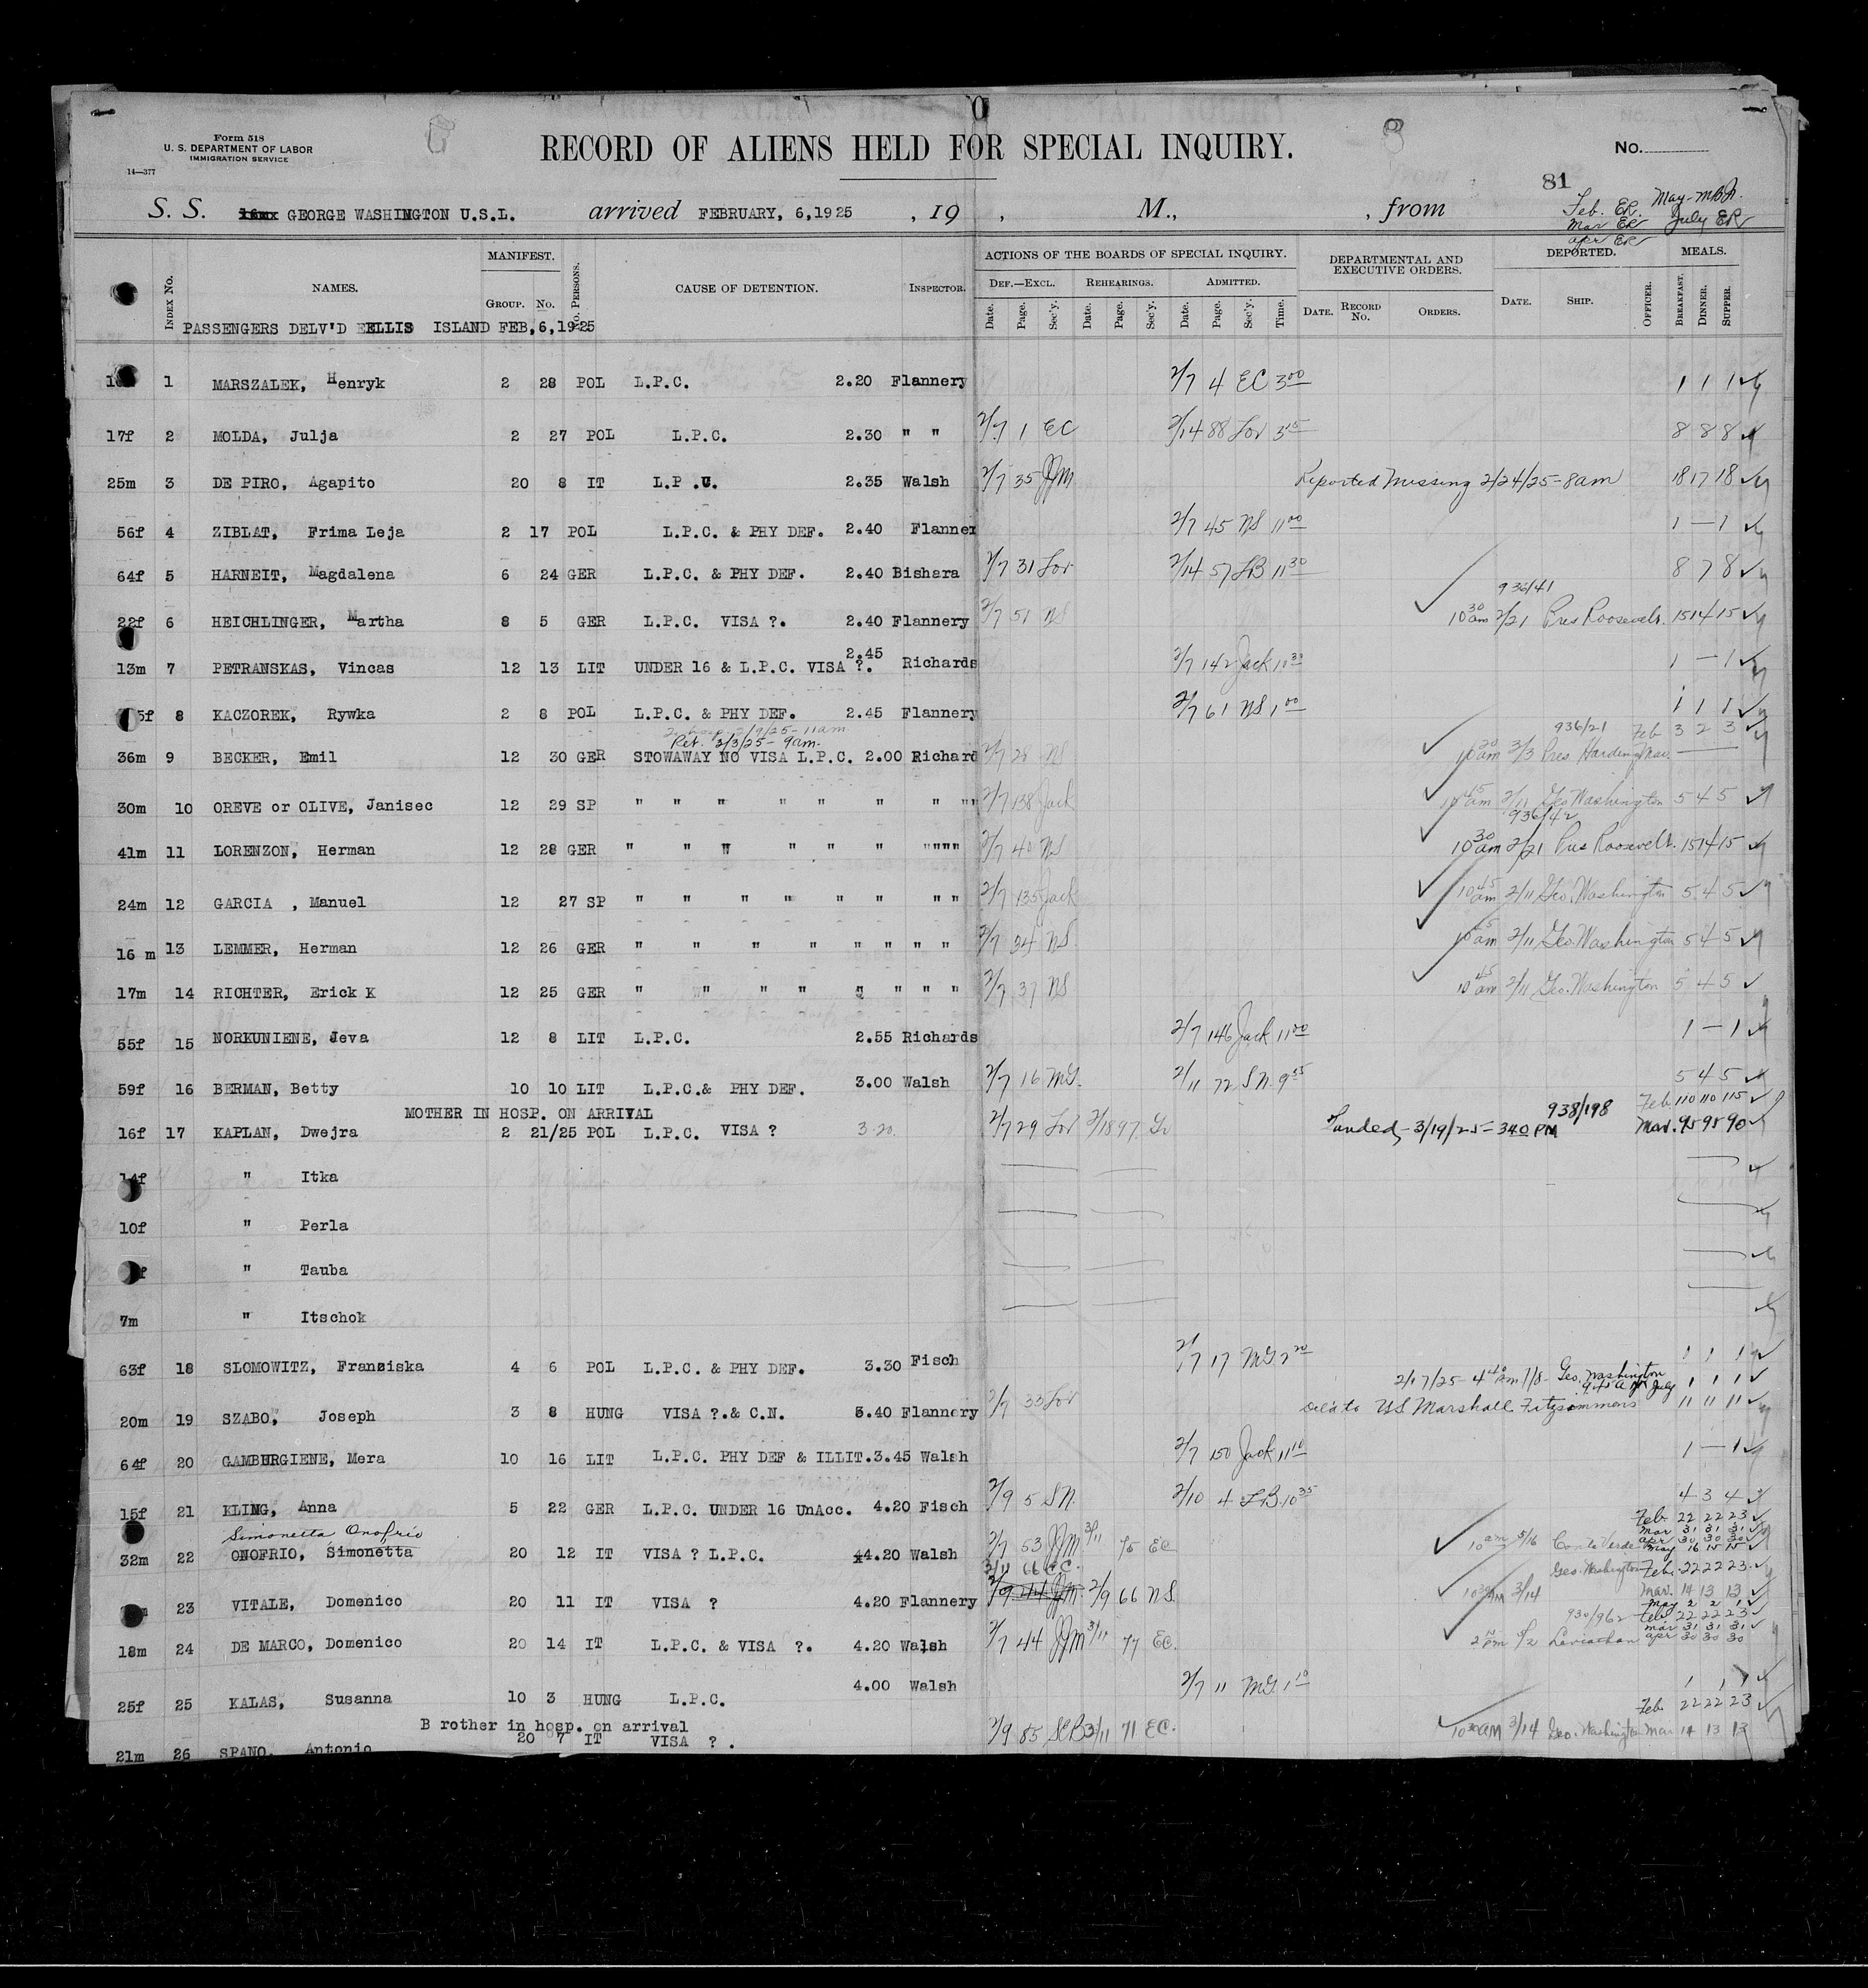 Form 518
U. S. DEPARTMENT OF LABOR
IMMIGRATION SERVICE
14—377
RECORD OF ALIENS HELD FOR SPECIAL INQUIRY.
No.
81
S. S. GEORGE WASHINGTON U.S.L. arrived FEBRUARY, 6,1925 , 19 , M., , from
Feb. ER. May-MBR.
Mar ER July ER
apr ER
Index No. NAMES. MANIFEST. Group. No. No. Persons. CAUSE OF DETENTION. Inspector. ACTIONS OF THE BOARDS OF SPECIAL INQUIRY. Def.—Excl. Date. Page. Sec'y. Rehearings. Date. Page. Sec'y. Admitted. Date. Page. Sec'y. Time. DEPARTMENTAL AND EXECUTIVE ORDERS. Date. Record No. Orders. DEPORTED. Date. Ship. Officer. MEALS. Breakfast. Dinner. Supper.
PASSENGERS DELV'D ELLIS ISLAND FEB,6,1925
1 MARSZALEK, Henryk 2 28 POL L.P.C. 2.20 Flannery 2/7 4 EC 3 00 1 1 1
17f 2 MOLDA, Julja 2 27 POL L.P.C. 2.30 " " 2/7 1 EC 2/14 88 Lor 3 15 8 8 8
25m 3 DE PIRO, Agapito 20 8 IT L.P.C. 2.35 Walsh 2/7 35 JJM Reported Missing 2/24/25-8am 18 17 18
56f 4 ZIBLAT, Frima Leja 2 17 POL L.P.C. & PHY DEF. 2.40 Flanner 2/7 45 NS 11 00 1 — 1
64f 5 HARNEIT, Magdalena 6 24 GER L.P.C. & PHY DEF. 2.40 Bishara 2/7 31 Lor 2/14 57 LB 11 30 8 7 8
936/41
22f 6 HEICHLINGER, Martha 8 5 GER L.P.C. VISA ?. 2.40 Flannery 2/7 51 NS 10 30 am 2/21 Pres Roosevelt. 15 14 15
13m 7 PETRANSKAS, Vincas 12 13 LIT UNDER 16 & L.P.C. VISA ?. 2.45 Richards 2/7 142 Jack 10 30 1 — 1
5f 8 KACZOREK, Rywka 2 8 POL L.P.C. & PHY DEF. 2.45 Flannery 2/7 61 NS 1 00 1 1 1
To hosp. 2/9/25-11am 936/21 Feb 3 2 3
Ret. 3/3/25-9am.
36m 9 BECKER, Emil 12 30 GER STOWAWAY NO VISA L.P.C. 2.00 Richard 2/7 28 NS 3/3 Pres Harding Mar.
30m 10 OREVE or OLIVE, Janisec 12 29 SP " " " " " " " "" 2/7 138 Jack 10 45 am 2/11 Geo Washington 5 4 5
936/42
41m 11 LORENZON, Herman 12 28 GER " " " " " " """" 2/7 40 NS 10 30 am 2/21 Pres Roosevelt. 15 14 15
24m 12 GARCIA , Manuel 12 27 SP " " " " " " " " 2/7 135 Jack 10 45 am 2/11 Geo. Washington 5 4 5
16 m 13 LEMMER, Herman 12 26 GER " " " " " " " " 2/7 34 NS. 2/11 Geo. Washington 5 4 5
17m 14 RICHTER, Erick K 12 25 GER " " " " " " " " 2/7 37 NS 10 45 am 2/11 Geo. Washington 5 4 5
55f 15 NORKUNIENE, Jeva 12 8 LIT L.P.C. 2.55 Richards 2/7 146 Jack 11 00 1 — 1
59f 16 BERMAN, Betty 10 10 LIT L.P.C.& PHY DEF. 3.00 Walsh 2/7 16 MG. 2/11 72 S.N. 9 55 5 4 5
MOTHER IN HOSP. ON ARRIVAL 938/198 Feb 110 110 115
16f 17 KAPLAN, Dwejra 2 21/25 POL L.P.C. VISA ? 3.20. 2/7 29 Lor 2/18 97 Landed, - 3/19/25- 340 PM Mar. 95 95 90
14f " Itka
10f " Perla
" Tauba
7m " Itschok
63f 18 SLOMOWITZ, Franziska 4 6 POL L.P.C. & PHY DEF. 3.30 Fisch 2/7 17 MG 2 20 1 1 1
Geo. Washington July 1 1 1
20m 19 SZABO, Joseph 3 8 HUNG VISA ?.& C.N. 3.40 Flannery 2/7 33 Lor Del'd to US Marshall Fitzsimmons 11 11 11
64f 20 GAMBURGIENE, Mera 10 16 LIT L.P.C. PHY DEF & ILLIT.3.45 Walsh 2/7 150 Jack 11 10 1 — 1
15f 21 KLING, Anna 5 22 GER L.P.C. UNDER 16 UnAcc. 4.20 Fisch 2/9 5 S N. 2/10 4 LB. 10 35 4 3 4
Simonetta Onofrio Feb 22 22 23
mar 31 31 31
apr 30 30 30
32m 22 ONOFRIO, Simonetta 20 12 IT VISA ? L.P.C. 4.20 Walsh 2/7 53 JJM 3/11 75 EC 10 am 5/16 Conte Verde May 16 15 15
3/11 66 EC. Geo. Washington Feb. 22 22 23
23 VITALE, Domenico 20 11 IT VISA ? 4.20 Flannery 2/9 66 NS. 10 30 AM 3/14 Mar. 14 13 13
May 2 2 1
930/962 Feb 22 22 23
mar 31 31 31
18m 24 DE MARCO, Domenico 20 14 IT L.P.C. & VISA ?. 4.20 Walsh 2/7 44 JJM 3/11 77 EC. 5/2 Leviathan apr 30 30 30
25f 25 KALAS, Susanna 10 3 HUNG L.P.C. 4.00 Walsh 2/7 11 MG. 1 10 1 1 1
Feb 22 22 23
B rother in hosp. on arrival
21m 26 SPANO, Antonio 20 7 IT VISA ? . 2/9 85 3/11 71 EC. 10 30 AM 3/14 Geo. Washington Mar 14 13 13